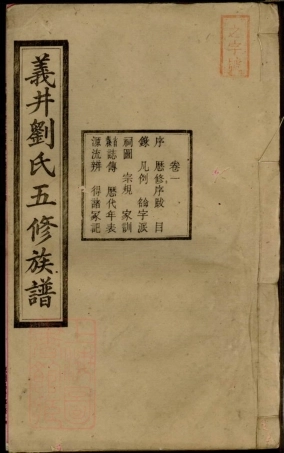 義井劉氏五修族譜
卷一
序 歷修序跋 目
錄 凡例 派
祠圖 宗規 家訓
誌傳 歷代年表
源流辨 得諸冢記